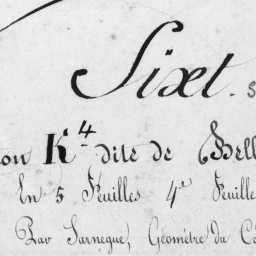 Sixt. s
on K4 dite de Bell
En 5 Feuilles 4e Feuille
Par Sarnegue, Géomètre du C